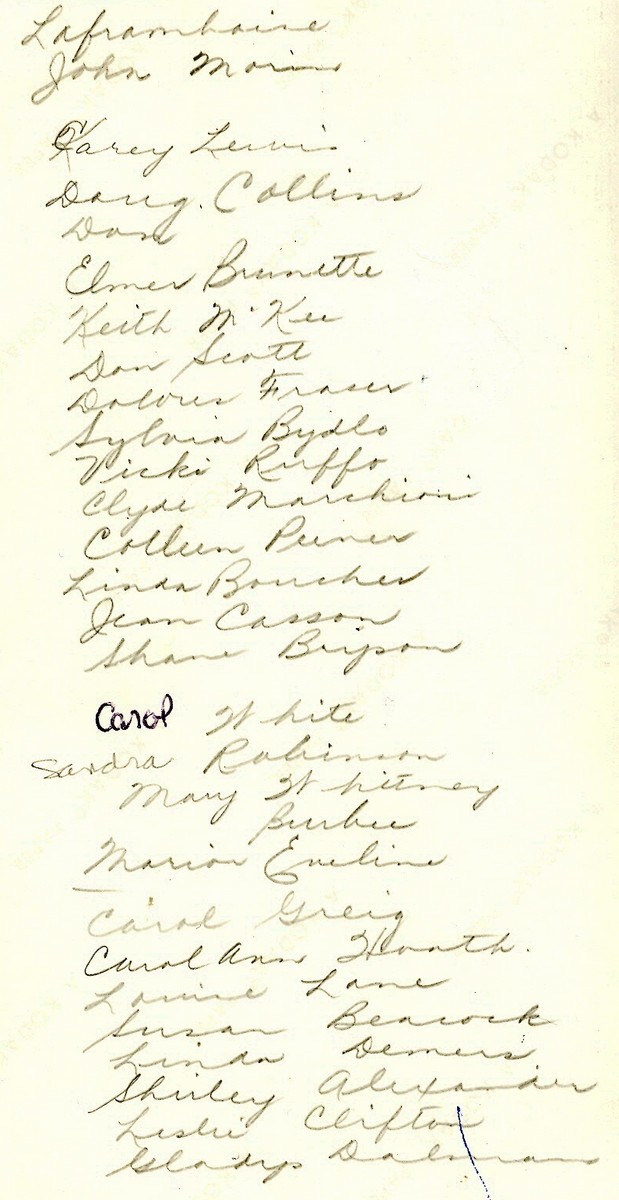 Laframboise
John Morin
Karey Lewis
Doug. Collins
Don
Elmer Brunette
Keith McKee
Don Scott
Dolores Fraser
Sylvia Bydlo
Vicki Ruffo
Clyde Marchioni
Colleen Peiner
Linda Boucher
Jean Casson
Shane
Carol White
Sandra Robinson
Mary Whitney
Burbee
Marion Eveline
Carol Greig
Carol Ann
Louise Lane
Susan Beacock
Linda Demers
Shirley Alexander
Leslie Clifton
Gladys Dalman